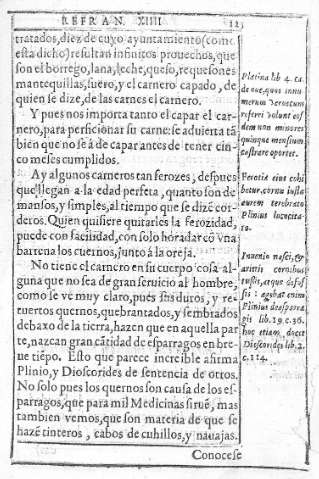 REFRAN. XIIII 12
tratados, diez de cuyo ayuntamiento (como
esta dicho) resultan infinitos prouechos, que
son el borrego, lana, leche, queso, requesones
mantequillas, suero, y el carnero capado, de
quien se dize, de las carnes el carnero.
Y pues nos importa tanto el capar el car-
nero, para perficionar su carne: se aduierta tã
bien que no se â de capar antes de tener cin-
co meses cumplidos.
Ay algunos carneros tan ferozes, despues
que llegan a la edad perfeta, quanto son de
mansos, y simples, al tiempo que se dizẽ cor-
deros. Quien quisiere quitarles la ferozidad,
puede con facilidad, con solo horadar cõ vna
barrena los cuernos, junto à la oreja.
No tiene el carnero en su cuerpo cosa al-
guna que no sea de gran seruicio al hombre,
como se vé muy claro, pues sus duros, y re-
tuertos quernos, quebrantados, y sembrados
debaxo de la tierra, hazen que en aquella par
te, nazcan gran cãtidad de esparragos en bre-
ue tiẽpo. Esto que parece increible afirma
Plinio, y Dioscorides de sentencia de otros.
No solo pues los quernos son causa de los es-
parragos, que para mil Medicinas siruẽ, mas
tambien vemos, que son materia de que se
hazẽ tinteros, cabos de cuhillos, y nauajas.
Conocese
Platina lib 4. ca.
de oue, quos innu
merum Veruecum
referri volunt eos
dem non minores
quinque mensium
castrare oportet.
Ferotia eius cohi
betur, cornu iuxta
aurem terebrato
Plinius loco cita-
to.
Inuenio nasci, et
arietis cornibus
tusis, atque defos
sis: agebat enim
Plinius de asparra
gis lib. 19. c. 36.
hoc etiam, docet
Dioscorides lib. 2.
c. 114.